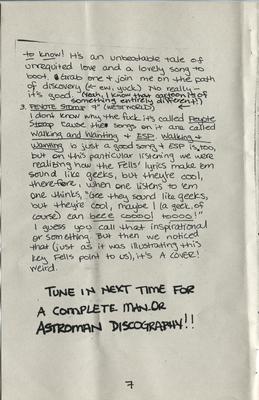 to know! It's an unbeatable tale of
unrequited love and a lovely song to
boot. Grab one + join me on the path
of discovery (← ew, yuck.) No really -
it's good. (Yeah, I know that cartoon is of
something entirely different!)
3. PEYOTE STOMP 7" (WESTWORLD)
I don't know why the fuck it's called Peyote
Stomp 'cause the songs on it are called
Walking and Wanting + ESP. Walking +
Wanting is just a good song + ESP is, too,
but on this particular listening we were
realizing how the Fells' lyrics make em
sound like geeks, but they're cool,
therefore, when one listens to em
one thinks, "Gee they sound like geeks,
but they're cool, maybe I (a geek, of
course) can beee cooool toooo!"
I guess you call that inspirational
or something. But then we noticed
that (just as it was illustrating this
key Fells point to us), it's A COVER!
Weird.
TUNE IN NEXT TIME FOR
A COMPLETE MAN.OR
ASTROMAN DISCOGRAPHY!!
7